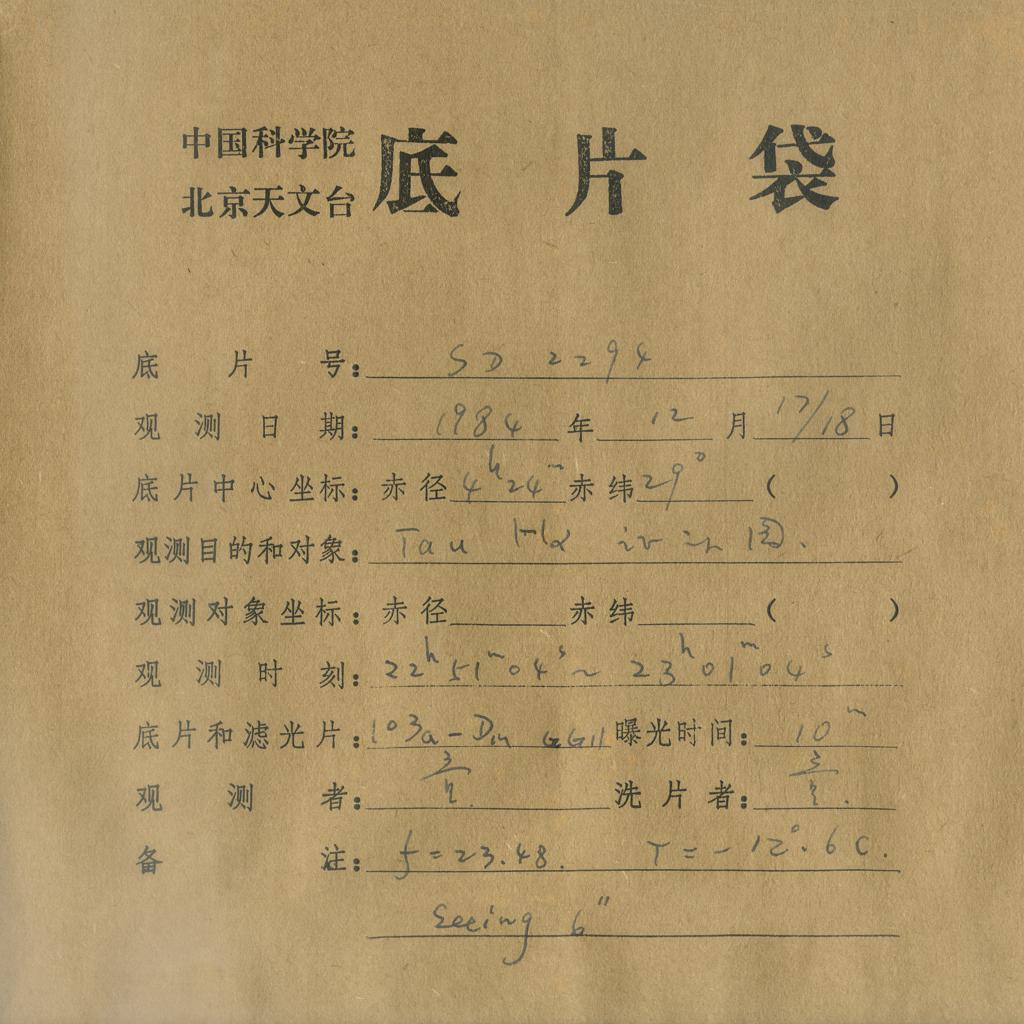 中国科学院
北京天文台
底片袋
底片号: SD 2294
观测日期: 1984 年 12 月 17/18 日
底片中心坐标: 赤径 4h 24m 赤纬 29° ( )
观测目的和对象: Tau Hα 证认图.
观测对象坐标: 赤径 赤纬 ( )
观测时刻: 22h 51m 04s ~ 23h 01m 04s
底片和滤光片: 103a-D GG11 曝光时间: 10m
观测者: 洗片者:
备注: f=23.48. T=-12°.6 C.
Seeing 6"